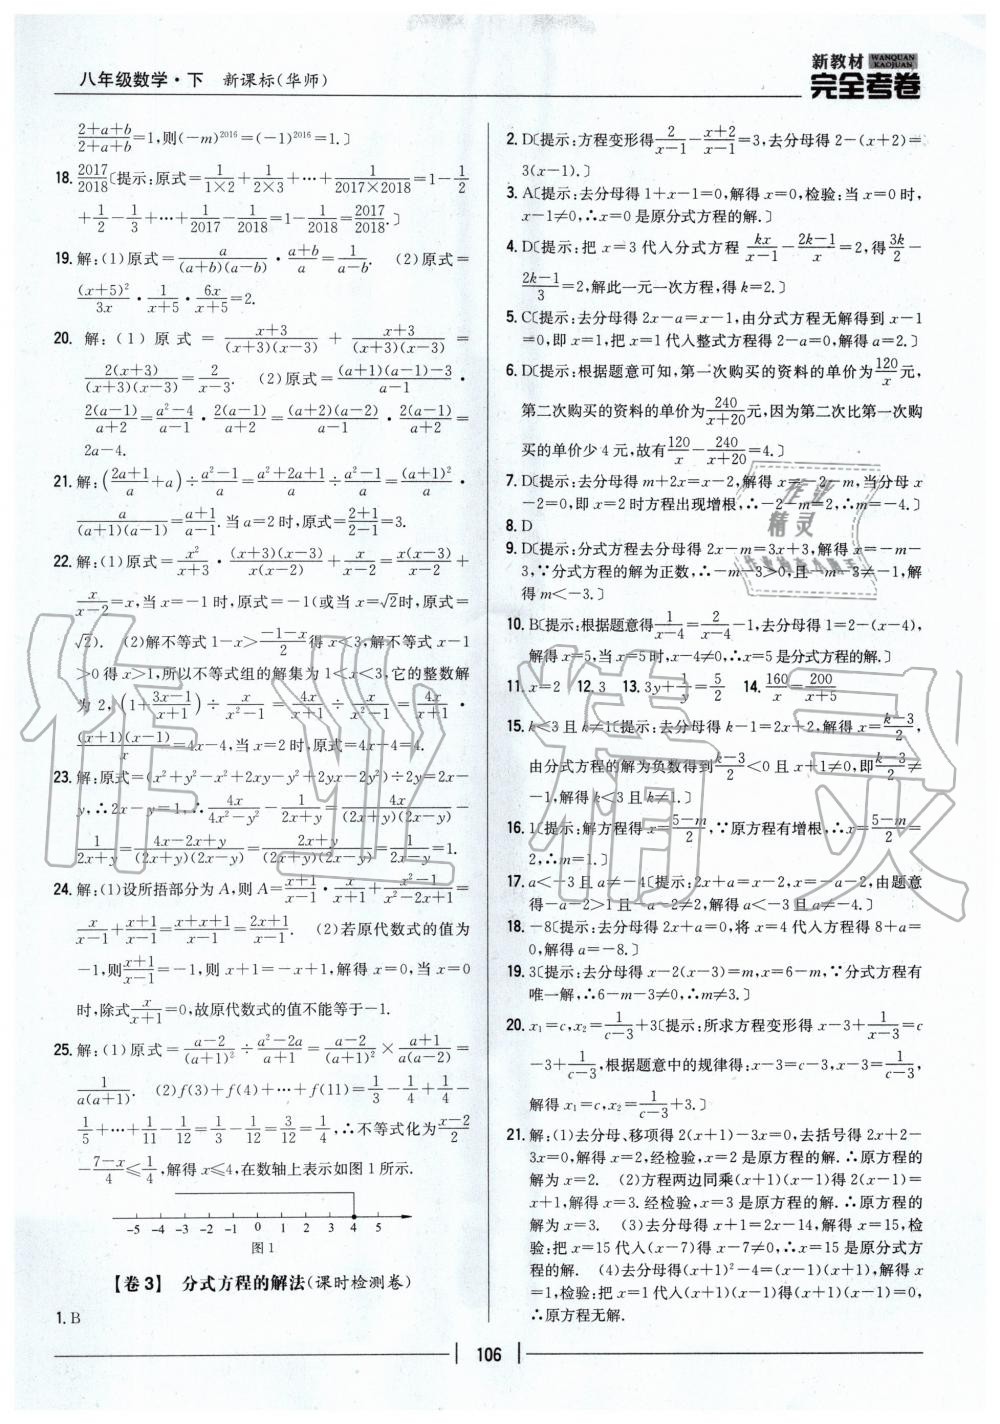 八年级数学·下 新课标(华师)
新教材 WANQUAN KAOJUAN
完全考卷
(2+a+b)/(2+a+b)=1,则(-m)^2016=(-1)^2016=1.〕
18. 2017/2018〔提示:原式=1/(1×2)+1/(2×3)+…+1/(2017×2018)=1-1/2
+1/2-1/3+…+1/2017-1/2018=1-1/2018=2017/2018.〕
19. 解:(1)原式=a/((a+b)(a-b))·(a+b)/a=1/(a-b). (2)原式=
(x+5)²/3x·1/(x+5)·6x/(x+5)=2.
20. 解:(1)原式=(x+3)/((x+3)(x-3))+(x+3)/((x+3)(x-3))=
2(x+3)/((x+3)(x-3))=2/(x-3). (2)原式=((a+1)(a-1)-3)/(a-1)·
2(a-1)/(a+2)=(a²-4)/(a-1)·2(a-1)/(a+2)=(a+2)(a-2)/(a-1)·2(a-1)/(a+2)=
2a-4.
21. 解:((2a+1)/a+a)÷(a²-1)/a=(a²+2a+1)/a÷(a²-1)/a=(a+1)²/a·
a/((a+1)(a-1))=(a+1)/(a-1).当a=2时,原式=(2+1)/(2-1)=3.
22. 解:(1)原式=x²/(x+3)·(x+3)(x-3)/(x(x-2))+x/(x-2)=x(x-3)/(x-2)+
x/(x-2)=x,当x=-1时,原式=-1(或当x=√2时,原式=
√2). (2)解不等式1-x>(-1-x)/2得x<3,解不等式x-1
>0得x>1,所以不等式组的解集为1<x<3,它的整数解
为2,(1+(3x-1)/(x+1))÷x/(x²-1)=4x/(x+1)÷x/(x²-1)=4x/(x+1)·
(x+1)(x-1)/x=4x-4,当x=2时,原式=4x-4=4.
23. 解:原式=(x²+y²-x²+2xy-y²+2yx-2y²)÷2y=2x-
y,∴2x-y=1,∴4x/(4x²-y²)-1/(2x+y)=4x/((2x+y)(2x-y))-
1/(2x+y)=(4x-2x+y)/((2x+y)(2x-y))=(2x+y)/((2x+y)(2x-y))=1/(2x-y)=1/1=1.
24. 解:(1)设所捂部分为A,则A=(x+1)/(x-1)·x/(x+1)+(x²-1)/(x²-2x+1)=
x/(x-1)+(x+1)/(x-1)=(x+x+1)/(x-1)=(2x+1)/(x-1). (2)若原代数式的值为
-1,则(x+1)/(x-1)=-1,则x+1=-x+1,解得x=0,当x=0
时,除式x/(x+1)=0,故原代数式的值不能等于-1.
25. 解:(1)原式=(a-2)/(a+1)²÷(a²-2a)/(a+1)=(a-2)/(a+1)²×(a+1)/(a(a-2))=
1/(a(a+1)). (2)f(3)+f(4)+…+f(11)=1/3-1/4+1/4-
1/5+…+1/11-1/12=1/3-1/12=3/12=1/4,∴不等式化为(x-2)/2
-(7-x)/4≤1/4,解得x≤4,在数轴上表示如图1所示.
-5 -4 -3 -2 -1 0 1 2 3 4 5
图1
【卷3】 分式方程的解法(课时检测卷)
1. B
2. D〔提示:方程变形得2/(x-1)-(x+2)/(x-1)=3,去分母得2-(x+2)=
3(x-1).〕
3. A〔提示:去分母得1+x-1=0,解得x=0,检验:当x=0时,
x-1≠0,∴x=0是原分式方程的解.〕
4. D〔提示:把x=3代入分式方程kx/(x-1)-(2k-1)/x=2,得3k/2
-(2k-1)/3=2,解此一元一次方程,得k=2.〕
5. C〔提示:去分母得2x-a=x-1,由分式方程无解得到x-1
=0,即x=1,把x=1代入整式方程得2-a=0,解得a=2.〕
6. D〔提示:根据题意可知,第一次购买的资料的单价为120/x元,
第二次购买的资料的单价为240/(x+20)元,因为第二次比第一次购
买的单价少4元,故有120/x-240/(x+20)=4.〕
7. D〔提示:去分母得m+2x=x-2,解得x=-2-m,当分母x
-2=0,即x=2时方程出现增根,∴-2-m=2,∴m=-4.〕
8. D
9. D〔提示:分式方程去分母得2x-m=3x+3,解得x=-m-
3,∵分式方程的解为正数,∴-m-3>0,且-m-3≠-1,解
得m<-3.〕
10. B〔提示:根据题意得1/(x-4)=2/(x-4)-1,去分母得1=2-(x-4),
解得x=5,当x=5时,x-4≠0,∴x=5是分式方程的解.〕
11. x=2 12. 3 13. 3y+1/y=5/2 14. 160/x=200/(x+5)
15. k<3且k≠1〔提示:去分母得k-1=2x+2,解得x=(k-3)/2,
由分式方程的解为负数得到(k-3)/2<0且x+1≠0,即(k-3)/2≠
-1,解得k<3且k≠1.〕
16. 1〔提示:解方程得x=(5-m)/2,∵原方程有增根,∴x=(5-m)/2=
2,∴m=1.〕
17. a<-3且a≠-4〔提示:2x+a=x-2,x=-a-2,由题意
得-a-2>1且-a-2≠2,解得a<-3且a≠-4.〕
18. -8〔提示:去分母得2x+a=0,将x=4代入方程得8+a=
0,解得a=-8.〕
19. 3〔提示:去分母得x-2(x-3)=m,x=6-m,∵分式方程有
唯一解,∴6-m-3≠0,∴m≠3.〕
20. x₁=c,x₂=1/(c-3)+3〔提示:所求方程变形得x-3+1/(x-3)=c
-3+1/(c-3),根据题意中的规律得:x-3=c-3,x-3=1/(c-3),
解得x₁=c,x₂=1/(c-3)+3.〕
21. 解:(1)去分母、移项得2(x+1)-3x=0,去括号得2x+2-
3x=0,解得x=2,经检验,x=2是原方程的解.∴原方程的
解为x=2. (2)方程两边同乘(x+1)(x-1)得2(x-1)=
x+1,解得x=3.经检验,x=3是原方程的解.∴原方程的
解为x=3. (3)去分母得x+1=2x-14,解得x=15,检
验:把x=15代入(x-7)得x-7≠0,∴x=15是原分式方
程的解. (4)去分母得(x+1)²-4=(x-1)(x+1),解得x
=1,检验:把x=1代入(x+1)(x-1)得(x+1)(x-1)=0,
∴原方程无解.
106
作业精灵
作业
精灵